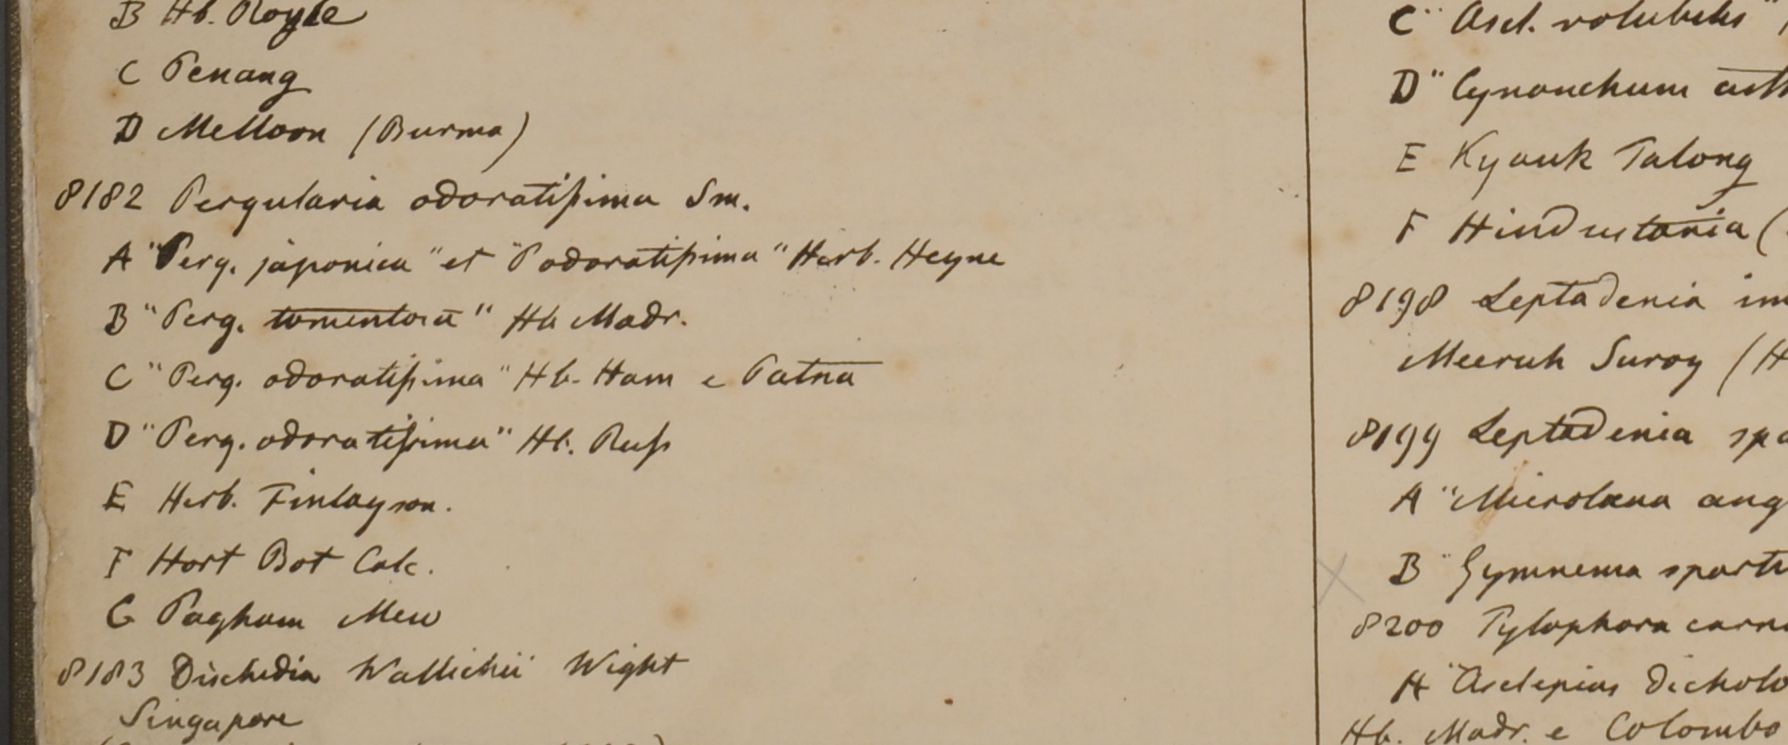 B Hb. Royle
C Penang
D Melloon (Burma)
8182 Pergularia odoratißima Sm.
A "Perg. japonica" et "P odoratißima" Herb. Heyne
B "Perg. tomentosa" Hb Madr.
C "Perg. odoratißima" Hb. Ham e Patna
D "Perg. odoratißima" Hb. Ruß
E Herb. Finlayson.
F Hort Bot Calc.
G Pagham Mew
8183 Dischidia Wallichii Wight
Singapore
C "Ascl. volubilis"
D "Cynanchum
E Kyauk Talong
F Hindustania (
8198 Leptadenia im
Meeruh Suroy (H
8199 Leptadenia spa
A "Microlaena ang
B "Gymnema sparti
8200 Tylophora carn
A "Asclepias dichoto
Hb. Madr. e Colombo